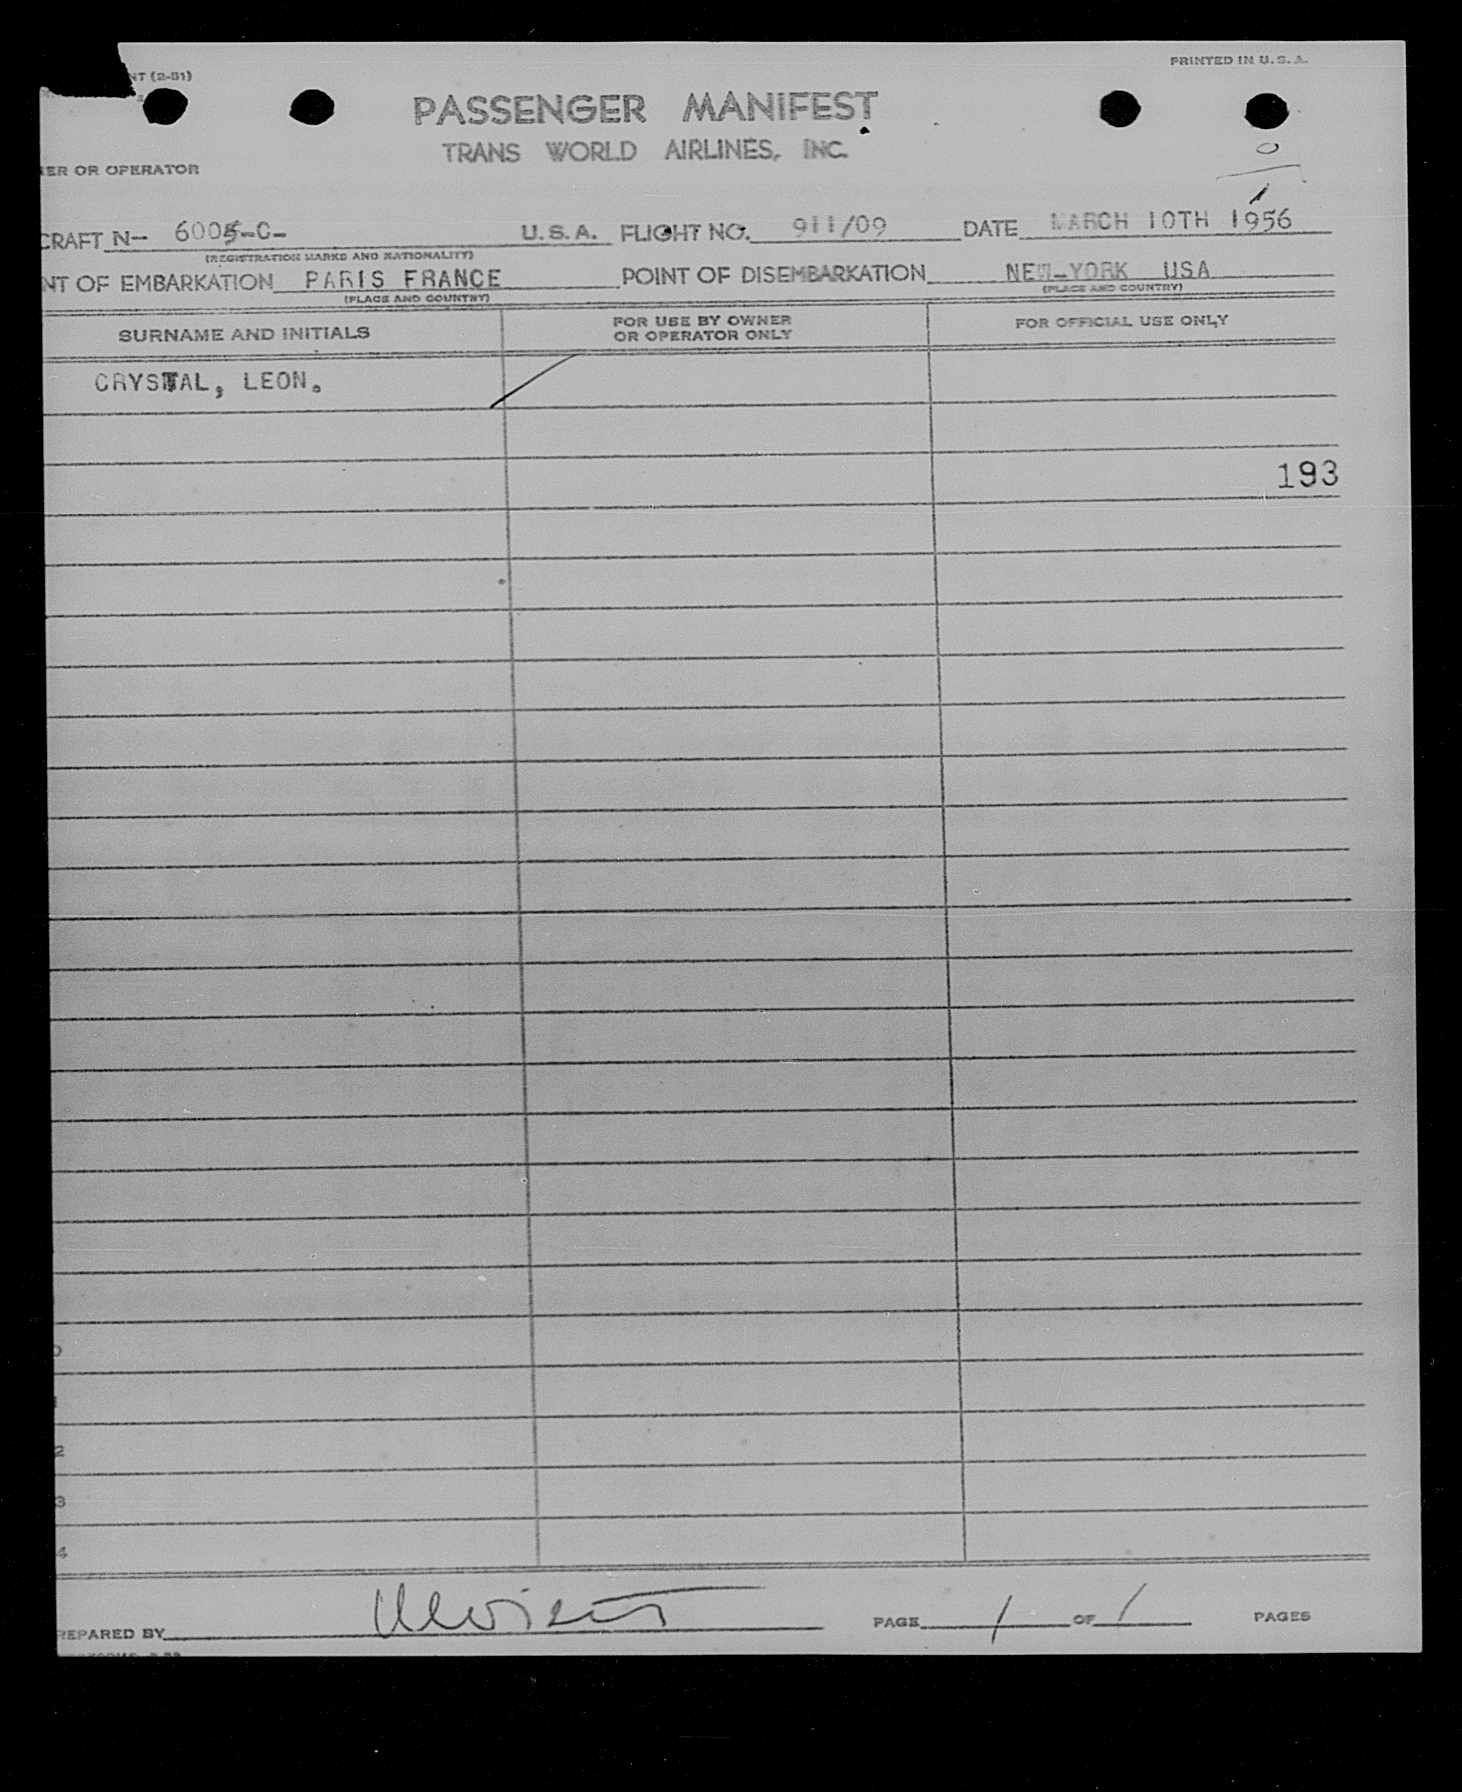 NT (2-51)
PRINTED IN U.S.A.
PASSENGER MANIFEST
TRANS WORLD AIRLINES, INC.
ER OR OPERATOR
0
1
CRAFT N- 6005-C- U.S.A. FLIGHT NO. 911/09 DATE MARCH 10TH 1956
(REGISTRATION MARKS AND NATIONALITY)
NT OF EMBARKATION PARIS FRANCE POINT OF DISEMBARKATION NEW-YORK USA
(PLACE AND COUNTRY) (PLACE AND COUNTRY)
SURNAME AND INITIALS FOR USE BY OWNER OR OPERATOR ONLY FOR OFFICIAL USE ONLY
CRYSTAL, LEON.
193
0
1
2
3
4
REPARED BY PAGE 1 OF 1 PAGES